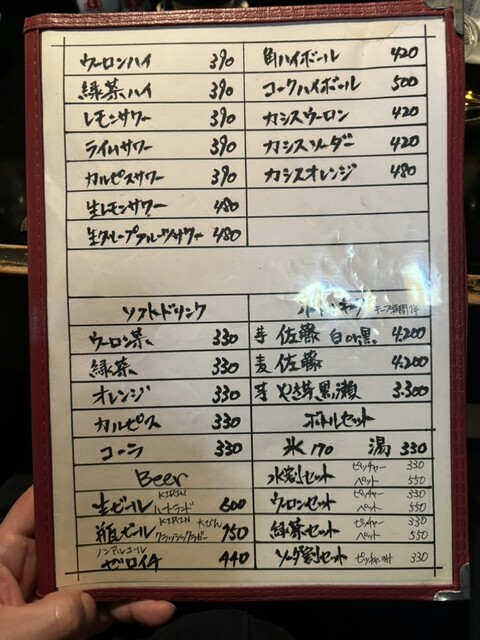 ウーロンハイ 390
緑茶ハイ 390
レモンサワー 390
ライムサワー 390
カルピスサワー 390
生レモンサワー 480
生グレープフルーツサワー 480
角ハイボール 420
コークハイボール 500
カシスウーロン 420
カシスソーダー 420
カシスオレンジ 480
ソフトドリンク
ウーロン茶 330
緑茶 330
オレンジ 330
カルピス 330
コーラ 330
Beer
生ビール KIRIN ハートランド 600
瓶ビール KIRIN クラシックラガー 大びん 750
ノンアルコール
ゼロイチ 440
ボトルキープ キープ期間
芋 佐藤 白or黒 4,200
麦 佐藤 4,200
芋 やき芋黒瀬 3,300
ボトルセット
氷 170 湯 330
水割セット ピッチャー 330
ペット 550
ウーロンセット ピッチャー 330
ペット 550
緑茶セット ピッチャー 330
ペット 550
ソーダ割セット 330